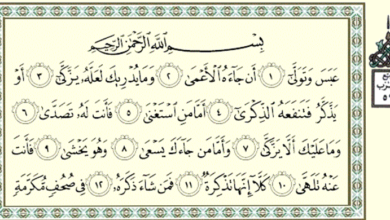 بِسْمِ ٱللَّهِ ٱلرَّحْمَٰنِ ٱلرَّحِيمِ
عَبَسَ وَتَوَلَّىٰٓ ١ أَن جَآءَهُ ٱلْأَعْمَىٰ ٢ وَمَا يُدْرِيكَ لَعَلَّهُۥ يَزَّكَّىٰٓ ٣ أَوْ
يَذَّكَّرُ فَتَنفَعَهُ ٱلذِّكْرَىٰٓ ٤ أَمَّا مَنِ ٱسْتَغْنَىٰ ٥ فَأَنتَ لَهُۥ تَصَدَّىٰ ٦
وَمَا عَلَيْكَ أَلَّا يَزَّكَّىٰ ٧ وَأَمَّا مَن جَآءَكَ يَسْعَىٰ ٨ وَهُوَ يَخْشَىٰ ٩ فَأَنتَ
عَنْهُ تَلَهَّىٰ ١٠ كَلَّآ إِنَّهَا تَذْكِرَةٌ ١١ فَمَن شَآءَ ذَكَرَهُۥ ١٢ فِى صُحُفٍ مُّكَرَّمَةٍ